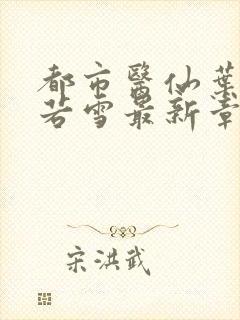 都市醫仙葉
若雪最新章
宋洪武